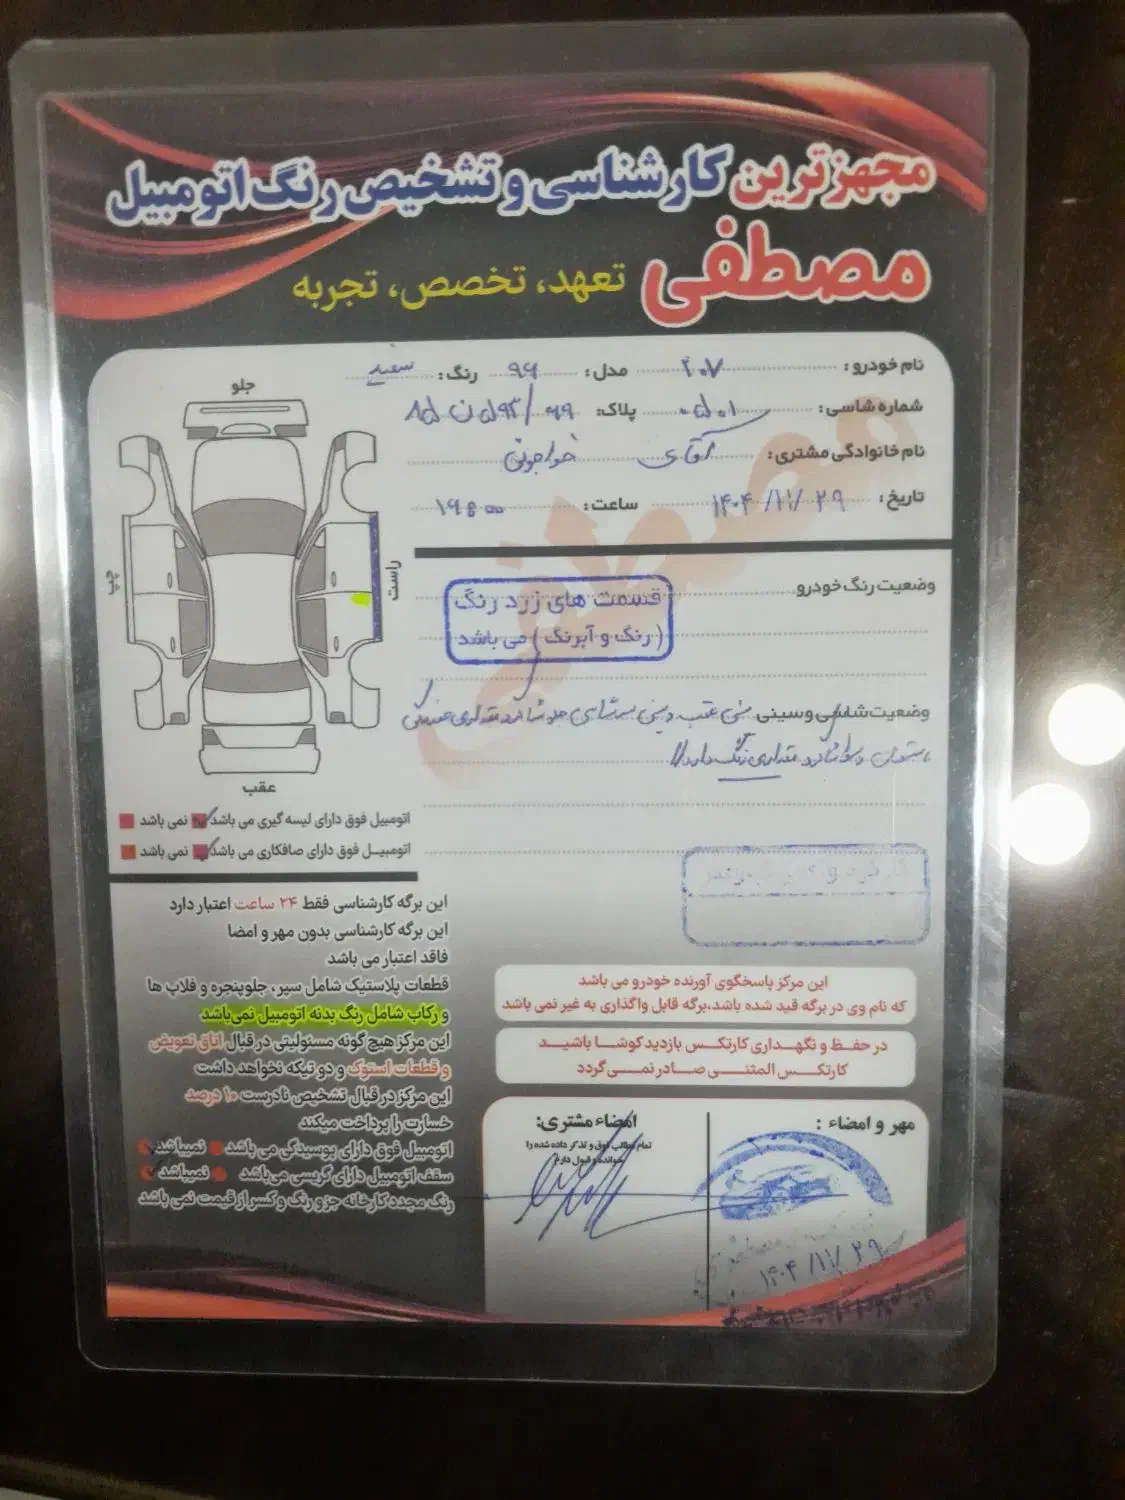 مجهزترین کارشناسی و تشخیص رنگ اتومبیل
مصطفی
تعهد، تخصص، تجربه
نام خودرو: ۲۰۷ مدل: ۹۹ رنگ: سفید
شماره شاسی: پلاک:
نام خانوادگی مشتری: آقای خواجوئی
تاریخ: ۱۴۰۴/۱۱/۲۹ ساعت: ۱۹:۰۰
جلو
چپ
راست
عقب
وضعیت رنگ خودرو
قسمت های زرد رنگ
(رنگ و آبرنگ) می باشد
وضعیت شاسی و سینی
اتومبیل فوق دارای لیسه گیری می باشد نمی باشد
اتومبیل فوق دارای صافکاری می باشد نمی باشد
این برگه کارشناسی فقط ۲۴ ساعت اعتبار دارد
این برگه کارشناسی بدون مهر و امضا
فاقد اعتبار می باشد
قطعات پلاستیک شامل سپر، جلوپنجره و فلاپ ها
و رکاب شامل رنگ بدنه اتومبیل نمی‌باشد
این مرکز هیچ گونه مسئولیتی در قبال اتاق تعویض
و قطعات استوک و دو تیکه نخواهد داشت
این مرکز در قبال تشخیص نادرست ۱۰ درصد
خسارت را پرداخت میکند
اتومبیل فوق دارای پوسیدگی می باشد نمیباشد
سقف اتومبیل دارای گریسی می‌باشد نمیباشد
رنگ مجدد کارخانه جزو رنگ و کسر از قیمت نمی باشد
این مرکز پاسخگوی آورنده خودرو می باشد
که نام وی در برگه قید شده باشد،برگه قابل واگذاری به غیر نمی باشد
در حفظ و نگهداری کارتکس بازدید کوشا باشید
کارتکس المثنی صادر نمی گردد
مهر و امضاء :
امضاء مشتری:
تمام مطالب فوق و تذکر داده شده را
خوانده و قبول دارم
۱۴۰۴/۱۱/۲۹